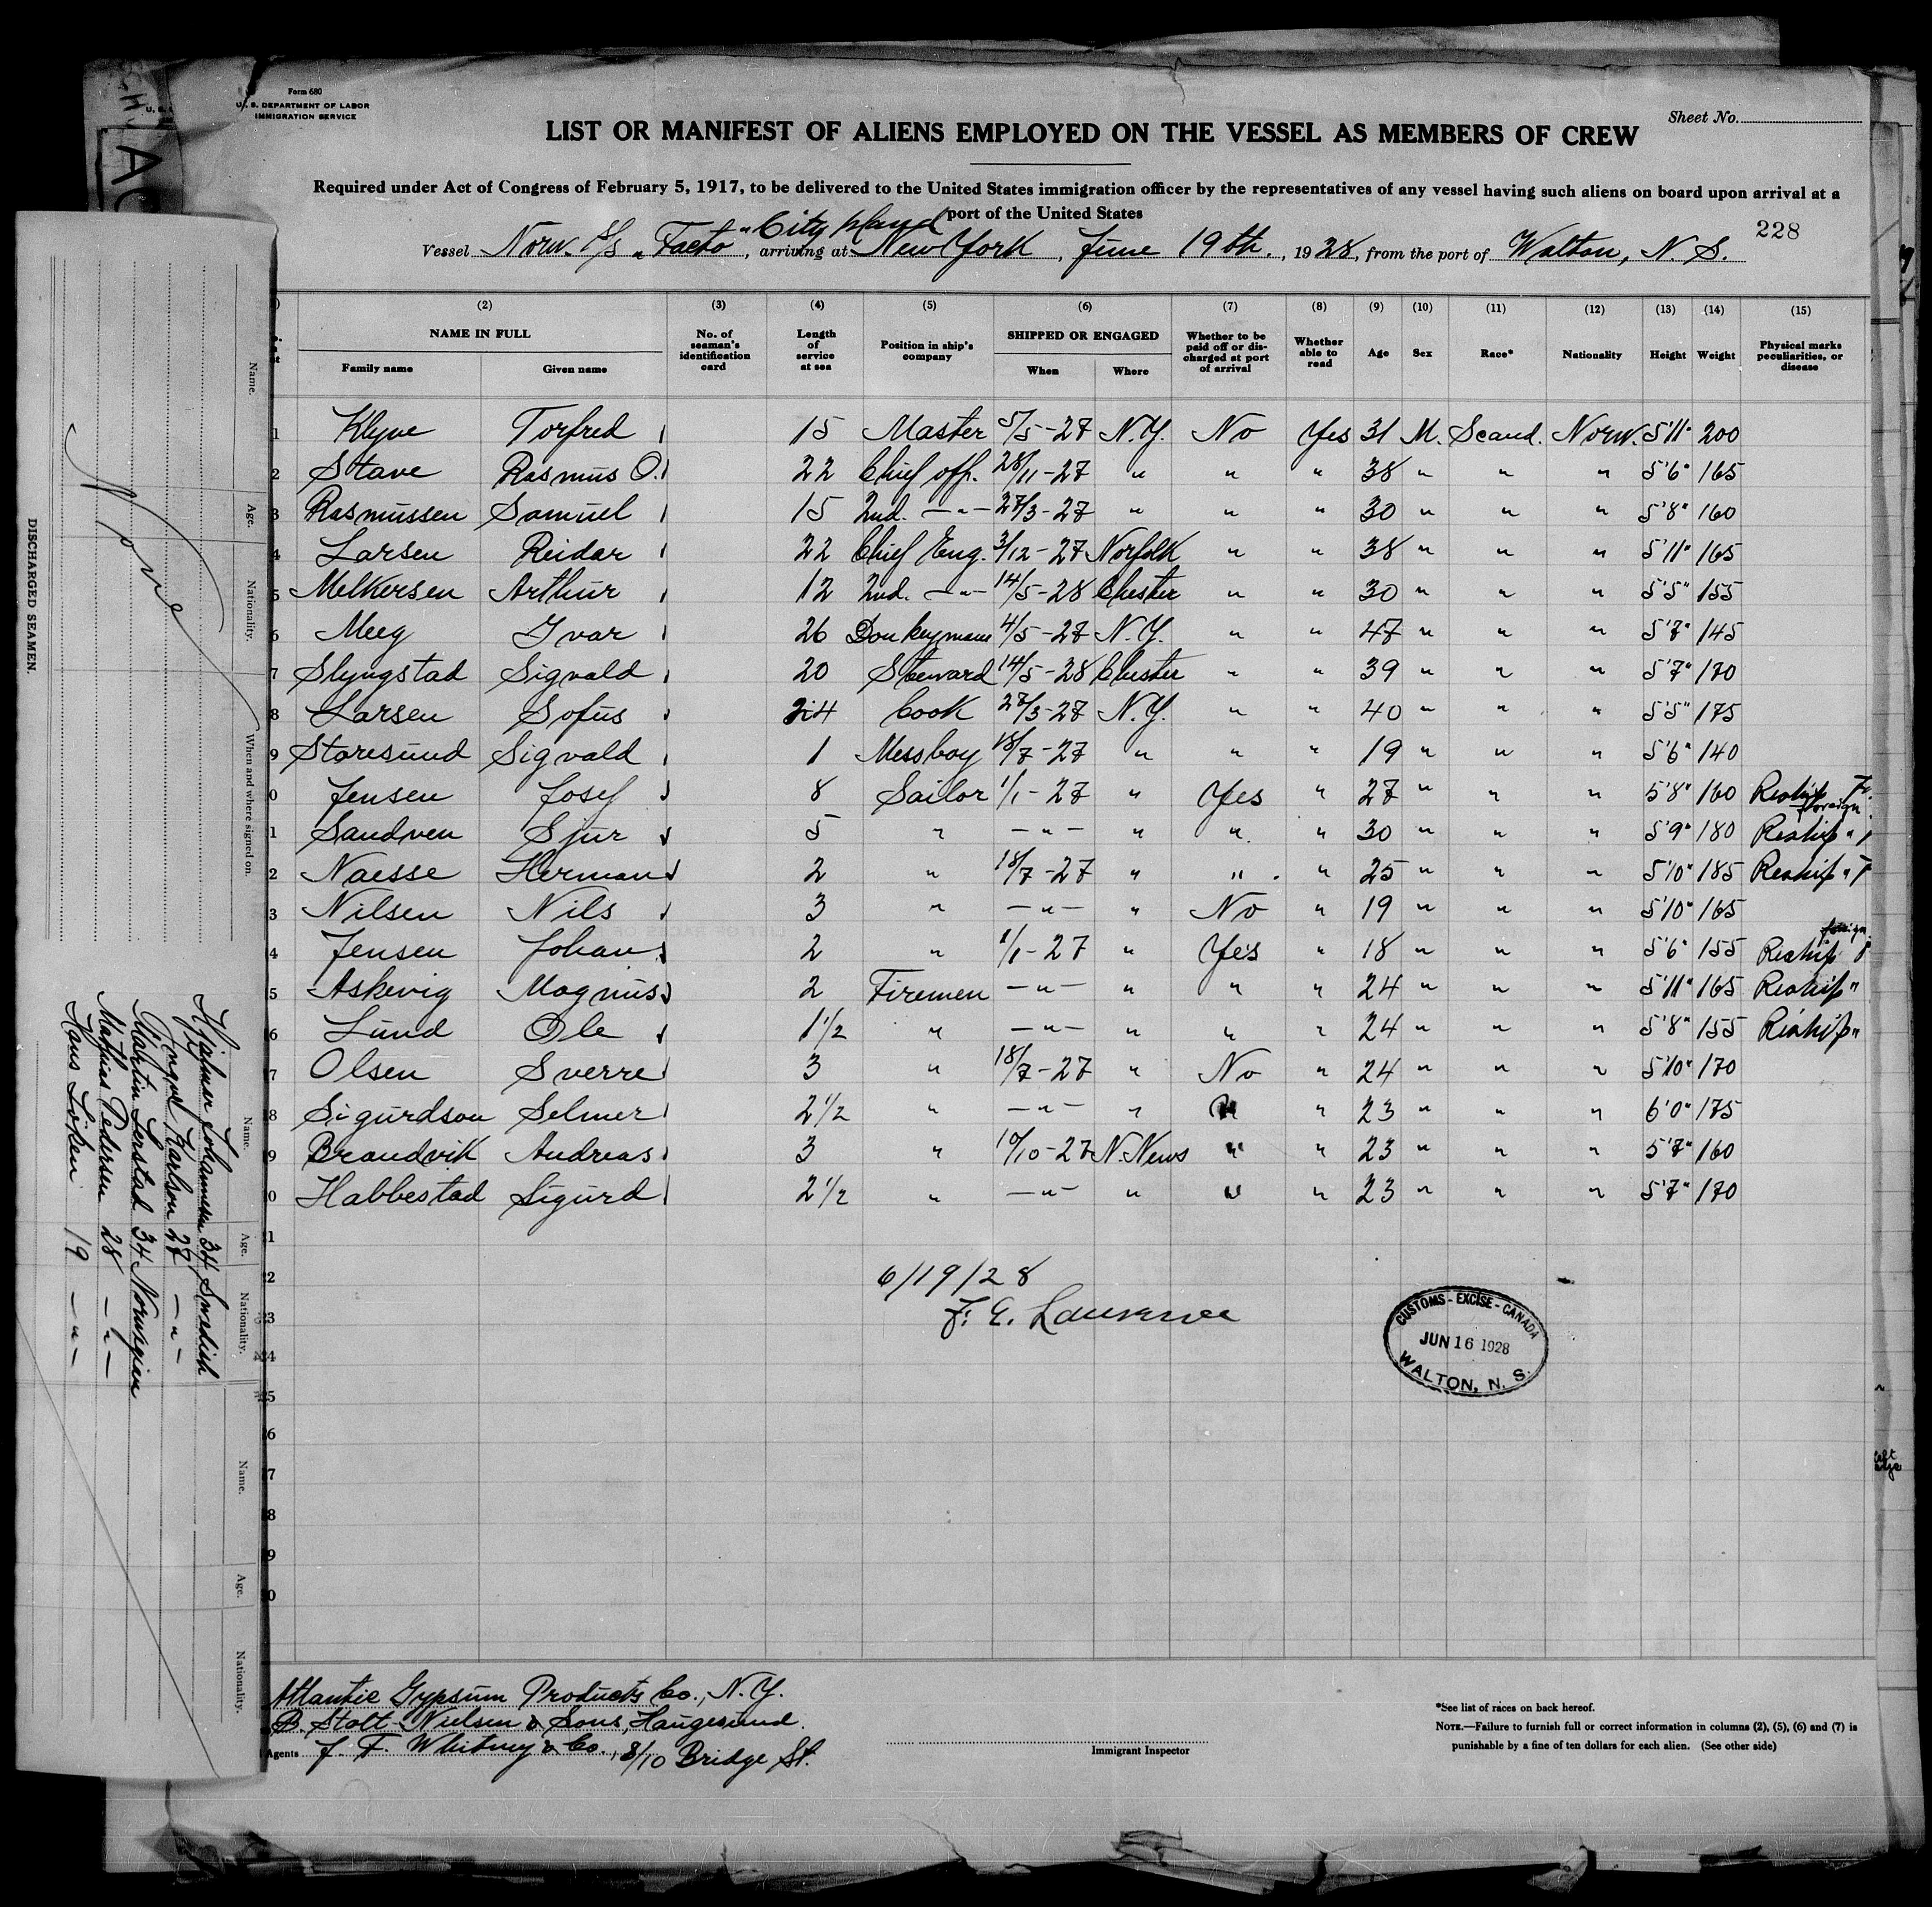 Form 680
U. S. DEPARTMENT OF LABOR
IMMIGRATION SERVICE
Sheet No.
LIST OR MANIFEST OF ALIENS EMPLOYED ON THE VESSEL AS MEMBERS OF CREW
Required under Act of Congress of February 5, 1917, to be delivered to the United States immigration officer by the representatives of any vessel having such aliens on board upon arrival at a
port of the United States
228
City Island
Vessel Norw. S/S "Facto", arriving at New York, June 19th., 1928, from the port of Walton, N. S.
(2) (3) (4) (5) (6) (7) (8) (9) (10) (11) (12) (13) (14) (15)
NAME IN FULL No. of seaman's identification card Length of service at sea Position in ship's company SHIPPED OR ENGAGED Whether to be paid off or discharged at port of arrival Whether able to read Age Sex Race* Nationality Height Weight Physical marks peculiarities, or disease
Family name Given name When Where
1 Klyve Torfred 15 Master 5/5-27 N.Y. No Yes 31 M. Scand. Norw. 5'11" 200
2 Stave Rasmus O. 22 Chief off. 28/11-27 " " " 38 " " " 5'6" 165
3 Rasmussen Samuel 15 2nd. -"- 27/3-27 " " " 30 " " " 5'8" 160
4 Larsen Reidar 22 Chief Eng. 3/12-27 Norfolk " " 38 " " " 5'11" 165
5 Melkersen Arthur 12 2nd. -"- 14/5-28 Chester " " 30 " " " 5'5" 155
6 Meeg Ivar 26 Donkeyman 4/5-27 N.Y. " " 47 " " " 5'7" 145
7 Slyngstad Sigvald 20 Steward 14/5-28 Chester " " 39 " " " 5'7" 170
8 Larsen Sofus 24 Cook 27/3-27 N.Y. " " 40 " " " 5'5" 175
9 Storesund Sigvald 1 Messboy 18/7-27 " " " 19 " " " 5'6" 140
0 Jensen Josef 8 Sailor 1/1-27 " Yes " 27 " " " 5'8" 160 Reship foreign
1 Sandven Sjur 5 " -"- " " " 30 " " " 5'9" 180 Reship "
2 Naesse Herman 2 " 18/7-27 " " " 25 " " " 5'10" 185 Reship "
3 Nilsen Nils 3 " -"- " No " 19 " " " 5'10" 165
4 Jensen Johan 2 " 1/1-27 " Yes " 18 " " " 5'6" 155 Reship foreign
5 Askevig Magnus 2 Firemen -"- " " " 24 " " " 5'11" 165 Reship "
6 Lund Ole 1 1/2 " -"- " " " 24 " " " 5'8" 155 Reship "
7 Olsen Sverre 3 " 18/7-27 " No " 24 " " " 5'10" 170
8 Sigurdson Selmer 2 1/2 " -"- " " " 23 " " " 6'0" 175
9 Brandvik Andreas 3 " 10/10-27 N.News " " 23 " " " 5'7" 160
0 Habbestad Sigurd 2 1/2 " -"- " " " 23 " " " 5'7" 170
1
2
3
4
5
6
7
8
9
0
6/19/28
F. E. Lawrence
CUSTOMS - EXCISE - CANADA
JUN 16 1928
WALTON, N. S.
Atlantic Gypsum Products Co., N.Y.
B. Stolt-Nielsen & Sons, Haugesund.
Agents J. F. Whitney & Co., 8/10 Bridge St.
Immigrant Inspector
*See list of races on back hereof.
NOTE.—Failure to furnish full or correct information in columns (2), (5), (6) and (7) is
punishable by a fine of ten dollars for each alien. (See other side)
DISCHARGED SEAMEN.
Name. Age. Nationality. When and where signed on.
None
Name. Age. Nationality.
Hjalmer Johannesen 34 Swedish
Yngvel Karlson 27 -"-
Martin Lerstad 34 Norwegian
Mathias Pedersen 28 -"-
Hans Löken 19 -"-
Name. Age. Nationality.